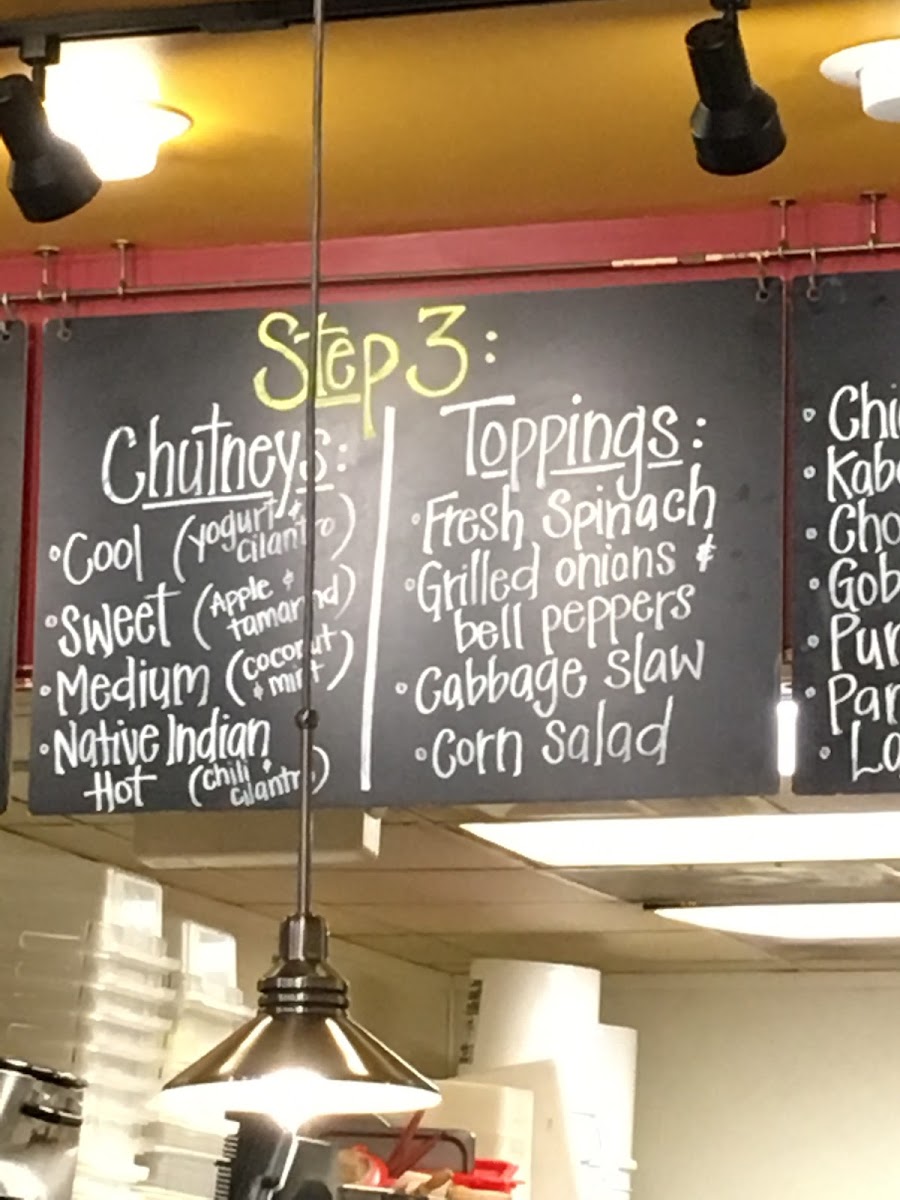 Step 3:
Chutneys:
• Cool (yogurt &
cilantro)
• Sweet (Apple &
tamarind)
• Medium (coconut
& mint)
• Native Indian
Hot (chili &
cilantro)
Toppings:
• Fresh Spinach
• Grilled onions &
bell peppers
• Cabbage slaw
• Corn salad